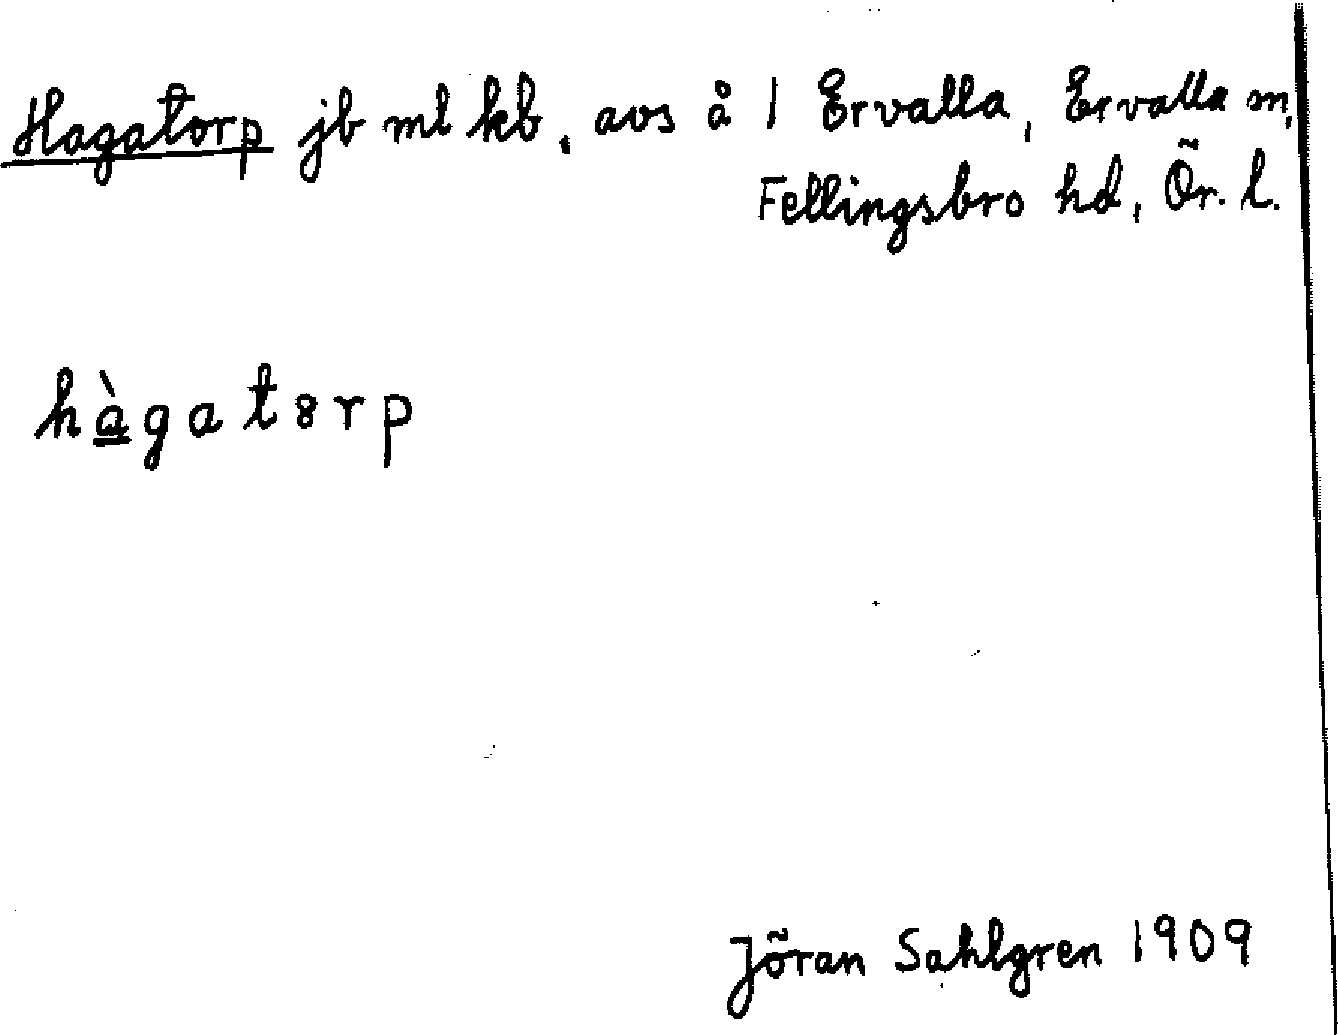 Hagatorp jb ml kb, avs å 1 Ervalla, Ervalla sn,
Fellingsbro hd, Ör. l.
hàgatɷrp
Jöran Sahlgren 1909